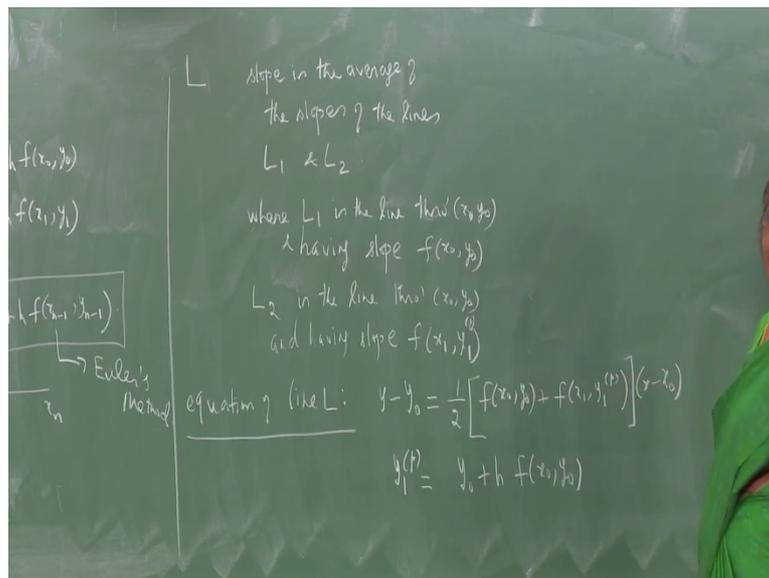 h f(x₀, y₀)
f(x₁, y₁)
+ h f(xₙ₋₁, yₙ₋₁)
→ Euler's
Method
xₙ
L slope is the average of
the slopes of the lines
L₁ & L₂
where L₁ is the line thro' (x₀, y₀)
& having slope f(x₀, y₀)
L₂ is the line thro' (x₀, y₀)
and having slope f(x₁, y₁⁽ᵖ⁾)
equation of line L: y - y₀ = 1/2 [f(x₀, y₀) + f(x₁, y₁⁽ᵖ⁾)] (x - x₀)
y₁⁽ᵖ⁾ = y₀ + h f(x₀, y₀)